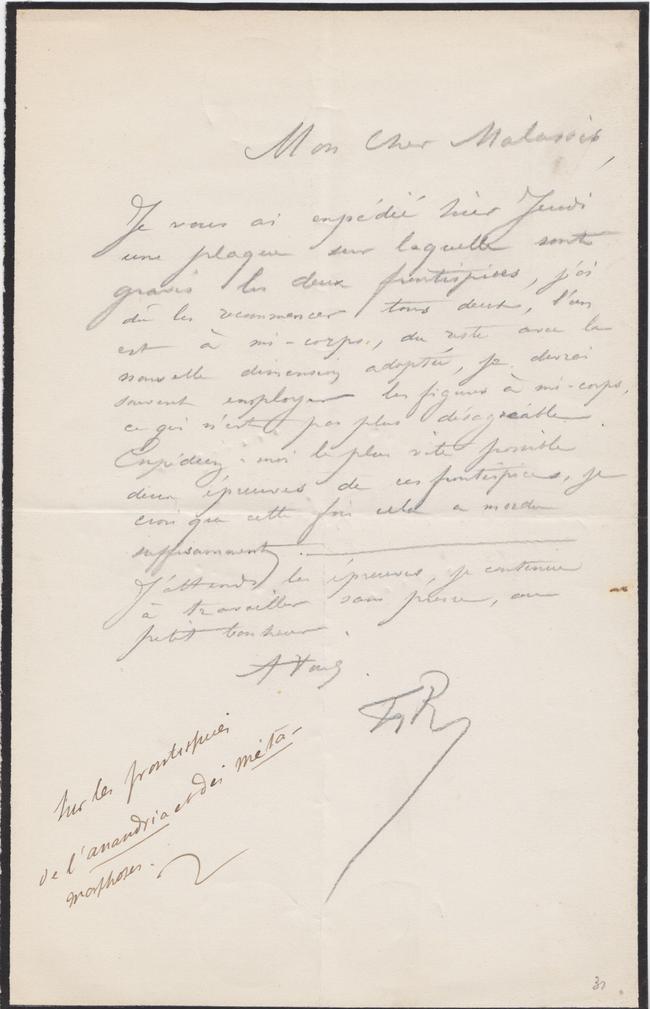 Mon Cher Malassis,
Je vous ai expédié hier Jeudi
une plaque sur laquelle sont
gravés les deux frontispices, j'ai
dû les recommencer tous deux, l'un
est à mi-corps, du reste avec la
nouvelle dimension adoptée, je devrai
souvent employer les figures à mi-corps,
ce qui n'est pas plus désagréable.
Expédiez-moi le plus vite possible
deux épreuves de ces frontispices, je
crois que cette fois cela a mordu
suffisamment.
J'attends les épreuves, je continue
à travailler sans presse, au
petit bonheur.
A Vous
FyR
Sur les frontispices
de l'anandria et des méta-
morphoses.
31